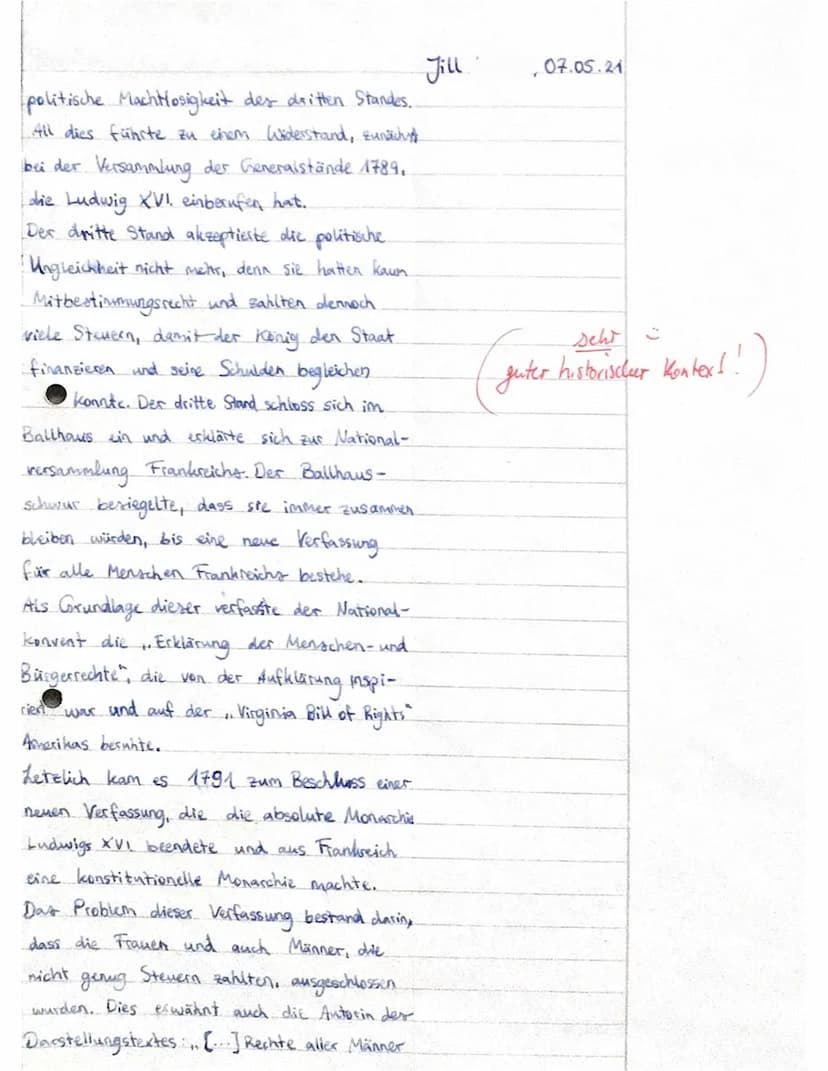 Jill , 07.05.21
politische Machtlosigkeit des dritten Standes.
All dies führte zu einem Widerstand, zunächst
bei der Versammlung der Generalstände 1789,
die Ludwig XVI. einberufen hat.
Der dritte Stand akzeptierte die politische
Ungleichheit nicht mehr, denn sie hatten kaum
Mitbestimmungsrecht und zahlten dennoch
viele Steuern, damit der König den Staat
finanzieren und seine Schulden begleichen
sehr
guter historischer Kontext!
konnte. Der dritte Stand schloss sich im
Ballhaus ein und erklärte sich zur National-
versammlung Frankreichs. Der Ballhaus-
schwur besiegelte, dass sie immer zusammen
bleiben würden, bis eine neue Verfassung
für alle Menschen Frankreichs bestehe.
Als Grundlage dieser verfasste der National-
konvent die „Erklärung der Menschen- und
Bürgerrechte", die von der Aufklärung inspi-
riert war und auf der „Virginia Bill of Rights"
Amerikas beruhte.
Letzlich kam es 1791 zum Beschluss einer
neuen Verfassung, die die absolute Monarchie
Ludwigs XVI. beendete und aus Frankreich
eine konstitutionelle Monarchie machte.
Das Problem dieser Verfassung bestand darin,
dass die Frauen und auch Männer, die
nicht genug Steuern zahlten, ausgeschlossen
wurden. Dies erwähnt auch die Autorin des
Darstellungstextes: „[...] Rechte aller Männer